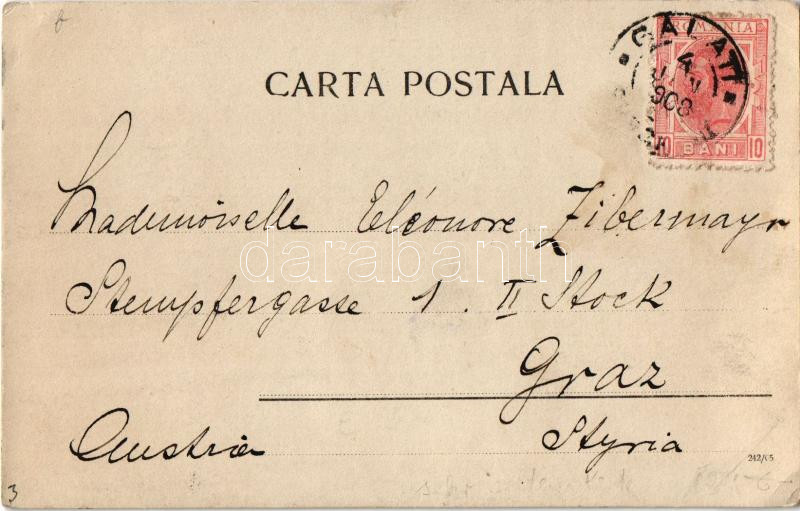 b
ROMANIA
GALATI
4
908
CARTA POSTALA
10 BANI 10
Mademoiselle Eléonore Zibermayr
darabanth
Stempfergasse 1. II Stock
Graz
Austria Styria
242/05
3